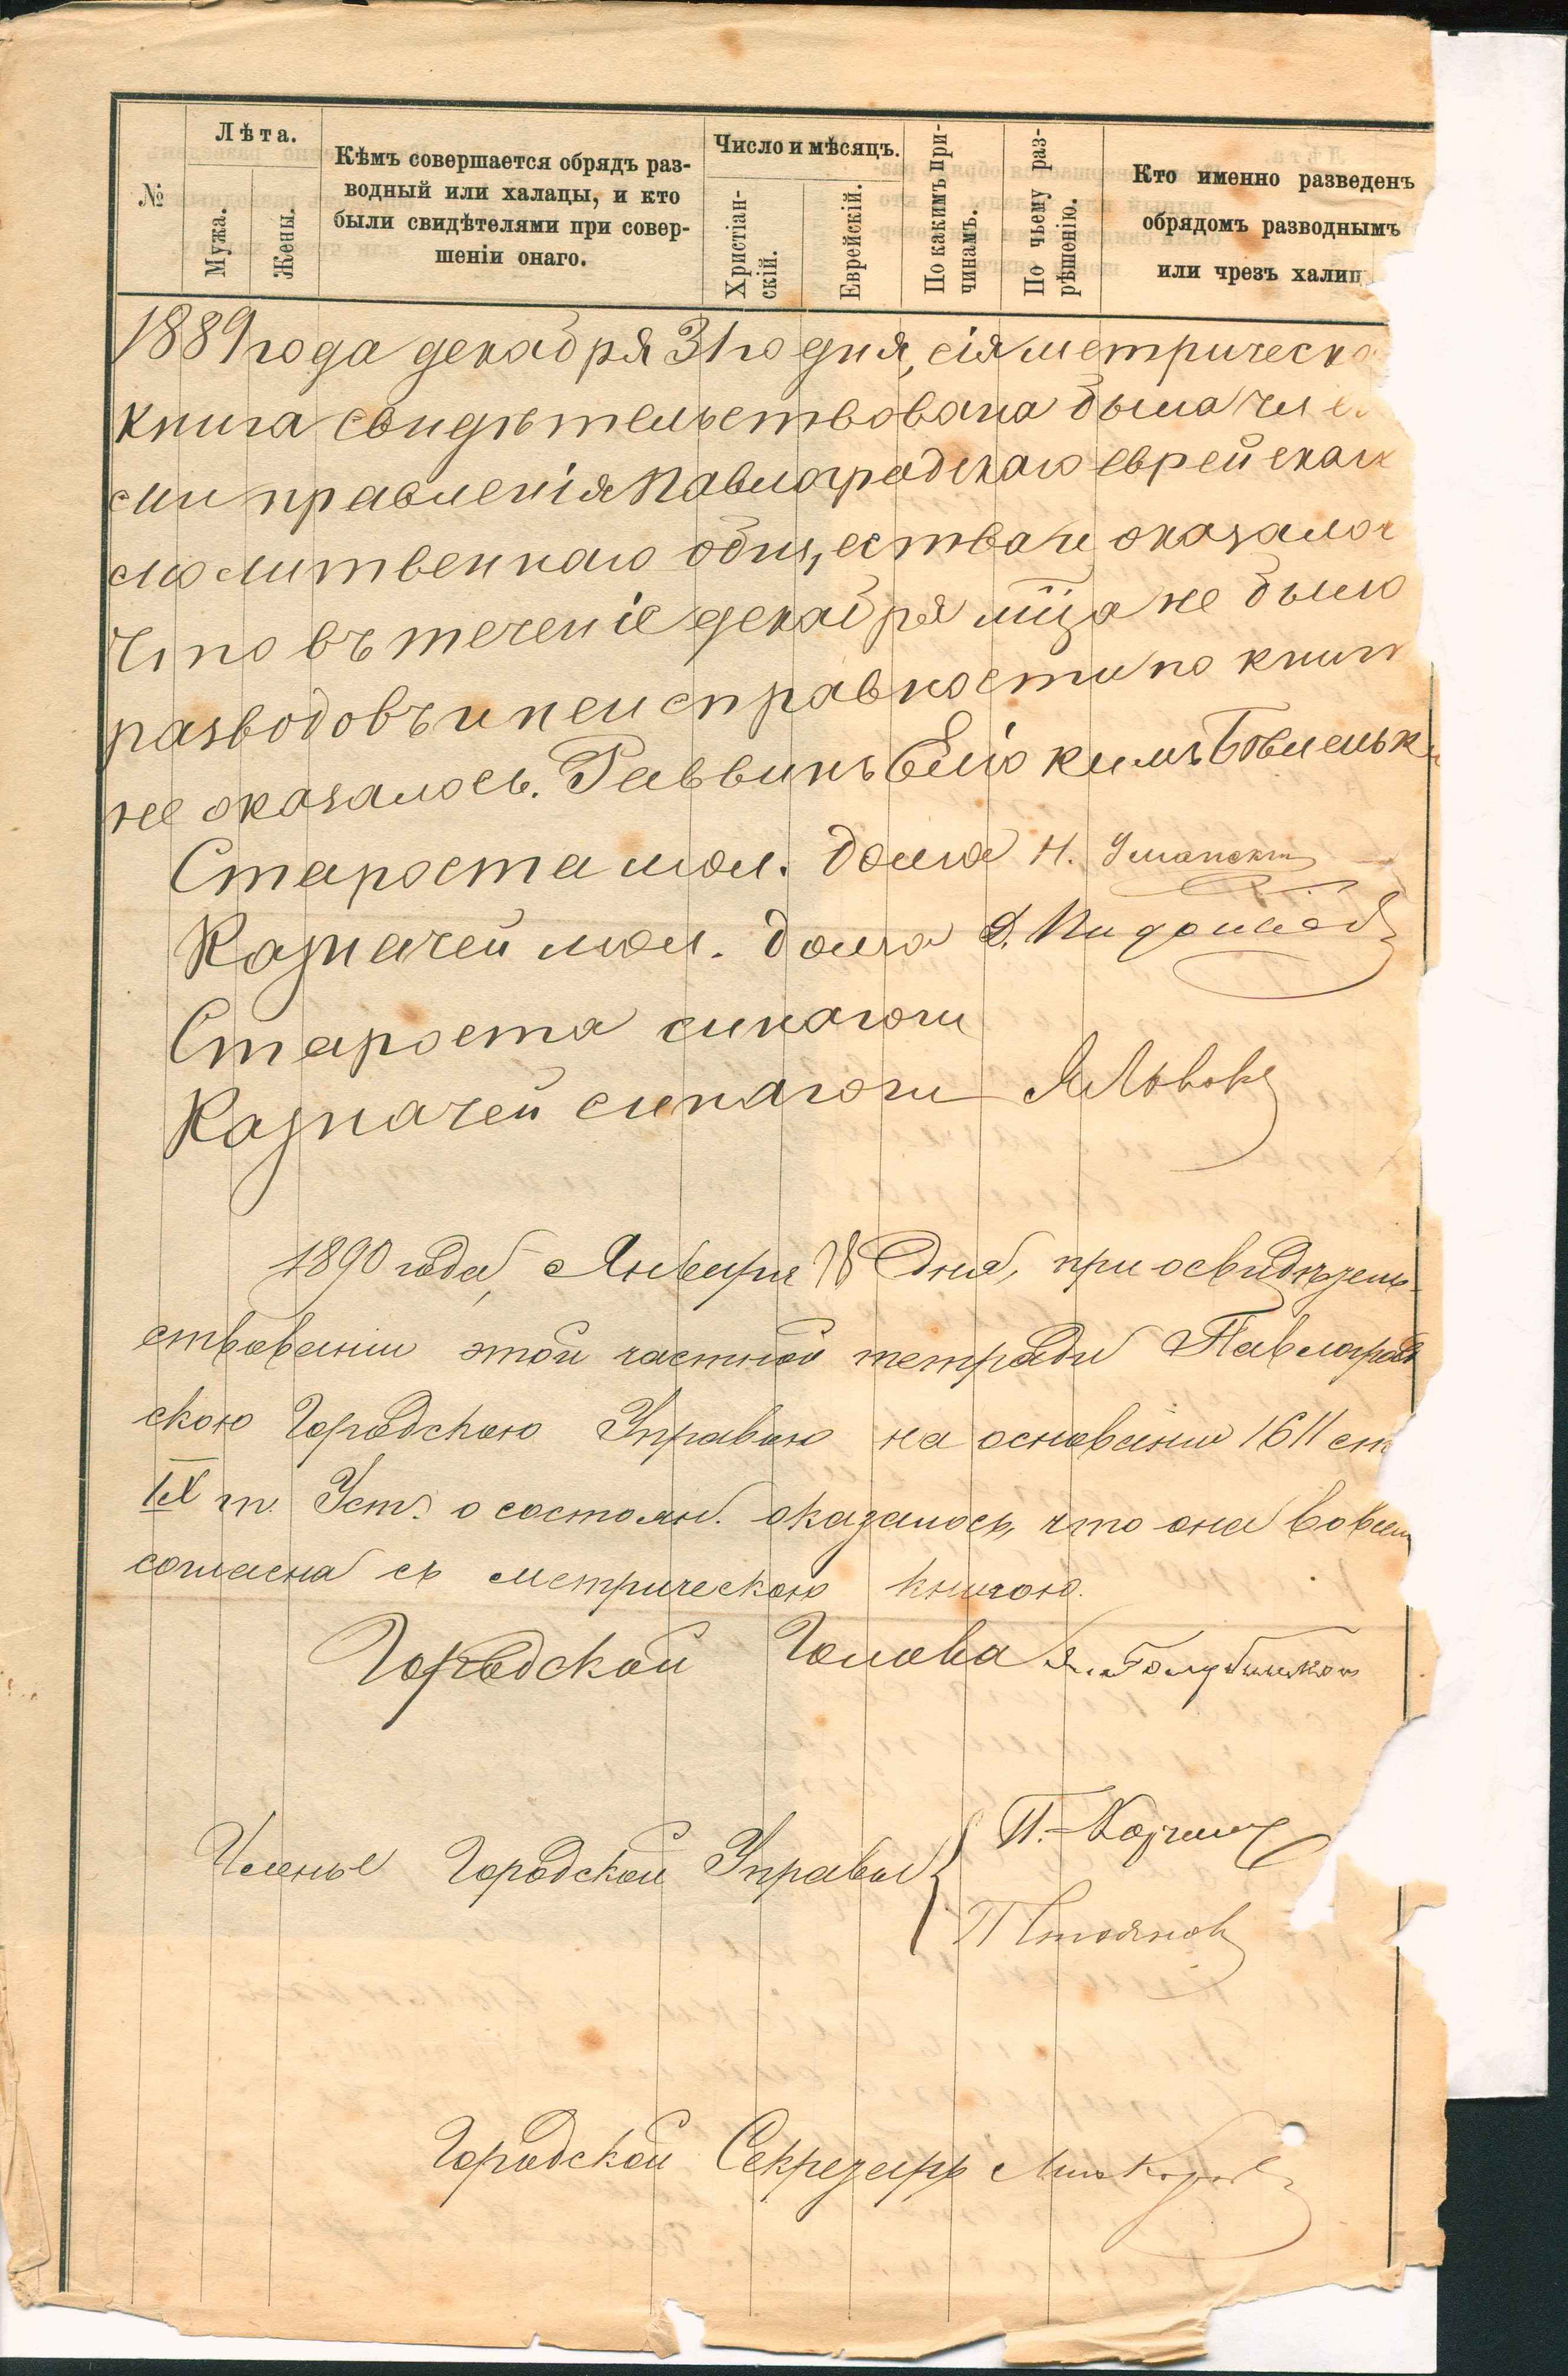 №
Лѣта.
Мужа.
Жены.
Кѣмъ совершается обрядъ раз-
водный или халацы, и кто
были свидѣтелями при совер-
шеніи онаго.
Число и мѣсяцъ.
Христіан-
скій.
Еврейскій.
По какимъ при-
чинамъ.
По чьему раз-
рѣшенію.
Кто именно разведенъ
обрядомъ разводнымъ
или чрезъ халиц
1889 года декабря 31го дня, сія метрическа
книга свидѣтельствована была чле
ми правленія Павлоградскаго еврейскаг
молитвеннаго общества и оказалос
что въ теченіе декабря мца не было
разводовъ и неисправности по книг
не оказалось. Раввинъ
Староста мол. дома Н. Уманскій
Казначей мол. дома
Староста синагоги
Казначей синагоги Львовъ
1890 года, Января 18 дня, при освидѣтель-
ствованіи этой частной тетради Павлоград
скою Городскою Управою на основаніи 1611 ст
IX т. Уст. о состоян. оказалось, что она вовсем
согласна съ метрическою книгою.
Городской Голова
Члены Городской Управы
П.
П Стояновъ
Городской Секретарь